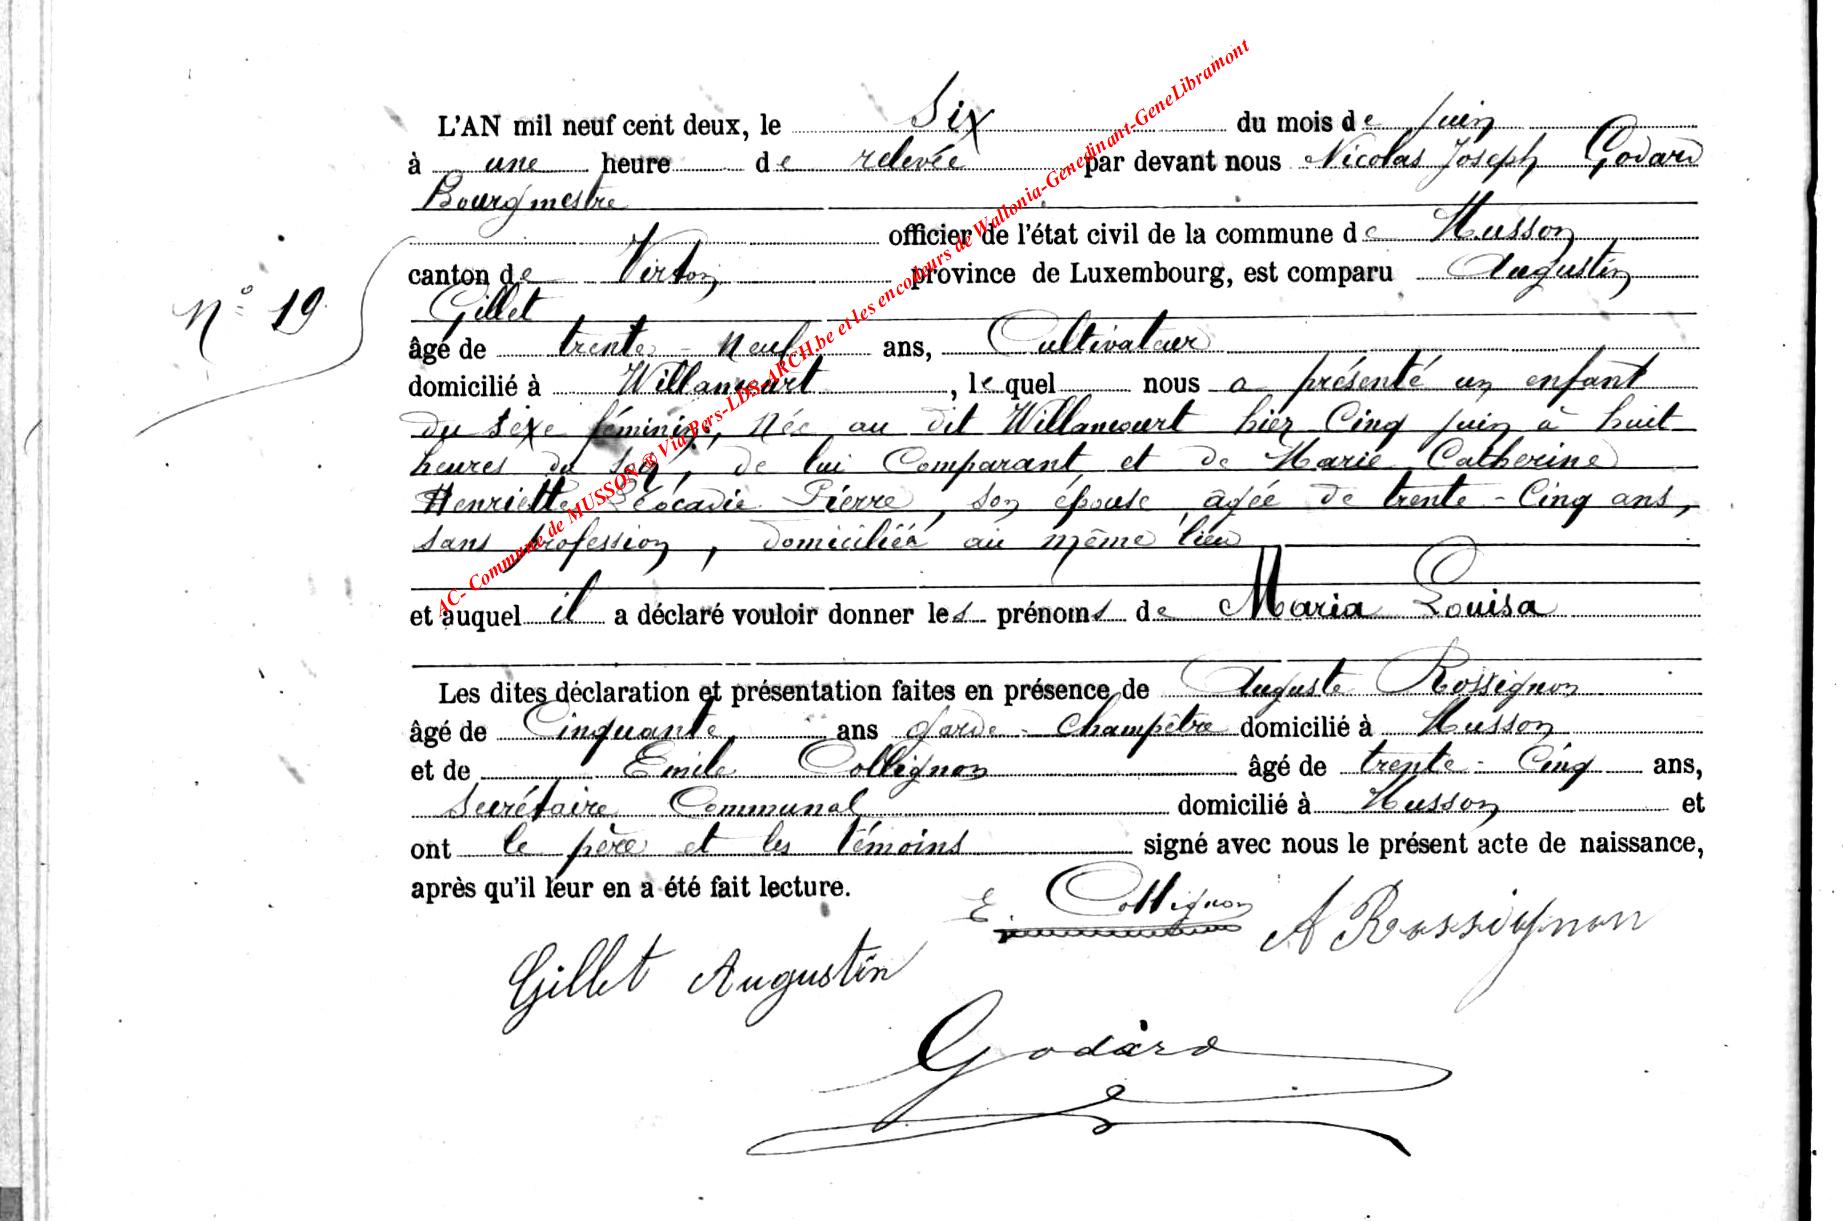 L'AN mil neuf cent deux, le six du mois de juin
à une heure de relevée par devant nous Nicolas Joseph Godard
Bourgmestre
officier de l'état civil de la commune de Musson
canton de Virton province de Luxembourg, est comparu Augustin
Gillet
N° 19
âgé de trente-neuf ans, Cultivateur
domicilié à Willancourt, lequel nous a présenté un enfant
du sexe féminin, née au dit Willancourt hier cinq juin à huit
heures du soir, de lui Comparant et de Marie Catherine
Henriette Léocadie Pierre, son épouse, âgée de trente-cinq ans,
sans profession, domiciliée au même lieu
et auquel il a déclaré vouloir donner les prénoms de Maria Louisa
Les dites déclaration et présentation faites en présence de Auguste Rossignon
âgé de Cinquante ans Garde-Champêtre domicilié à Musson
et de Emile Collignon âgé de trente-cinq ans,
secrétaire Communal domicilié à Musson et
ont le père et les témoins signé avec nous le présent acte de naissance,
après qu'il leur en a été fait lecture.
E. Collignon A Rossignon
Gillet Augustin
Godard
AC- Commune de MUSSON ® Via Pers-LDS-ARCH.be et les encodeurs de Wallonia-Genedinant-GeneLibramont